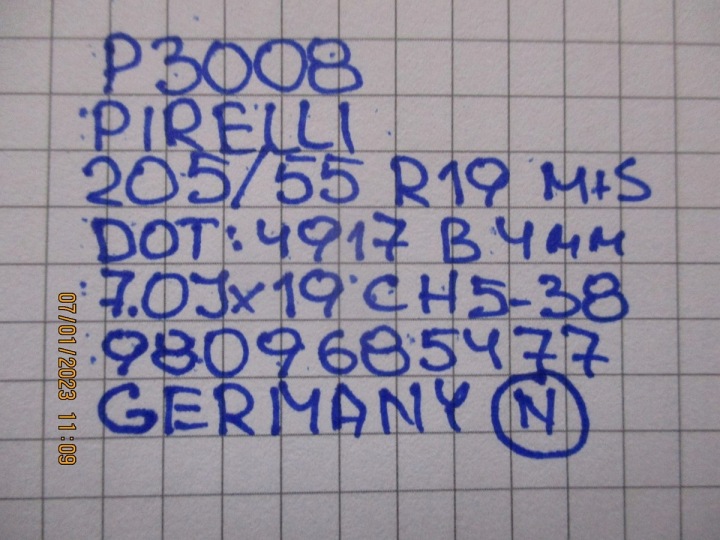 P3008
PIRELLI
205/55 R19 M+S
DOT:4917 B 4мм
7.0J×19 CH5-38
9809685477
GERMANY N
07/01/2023 11:09